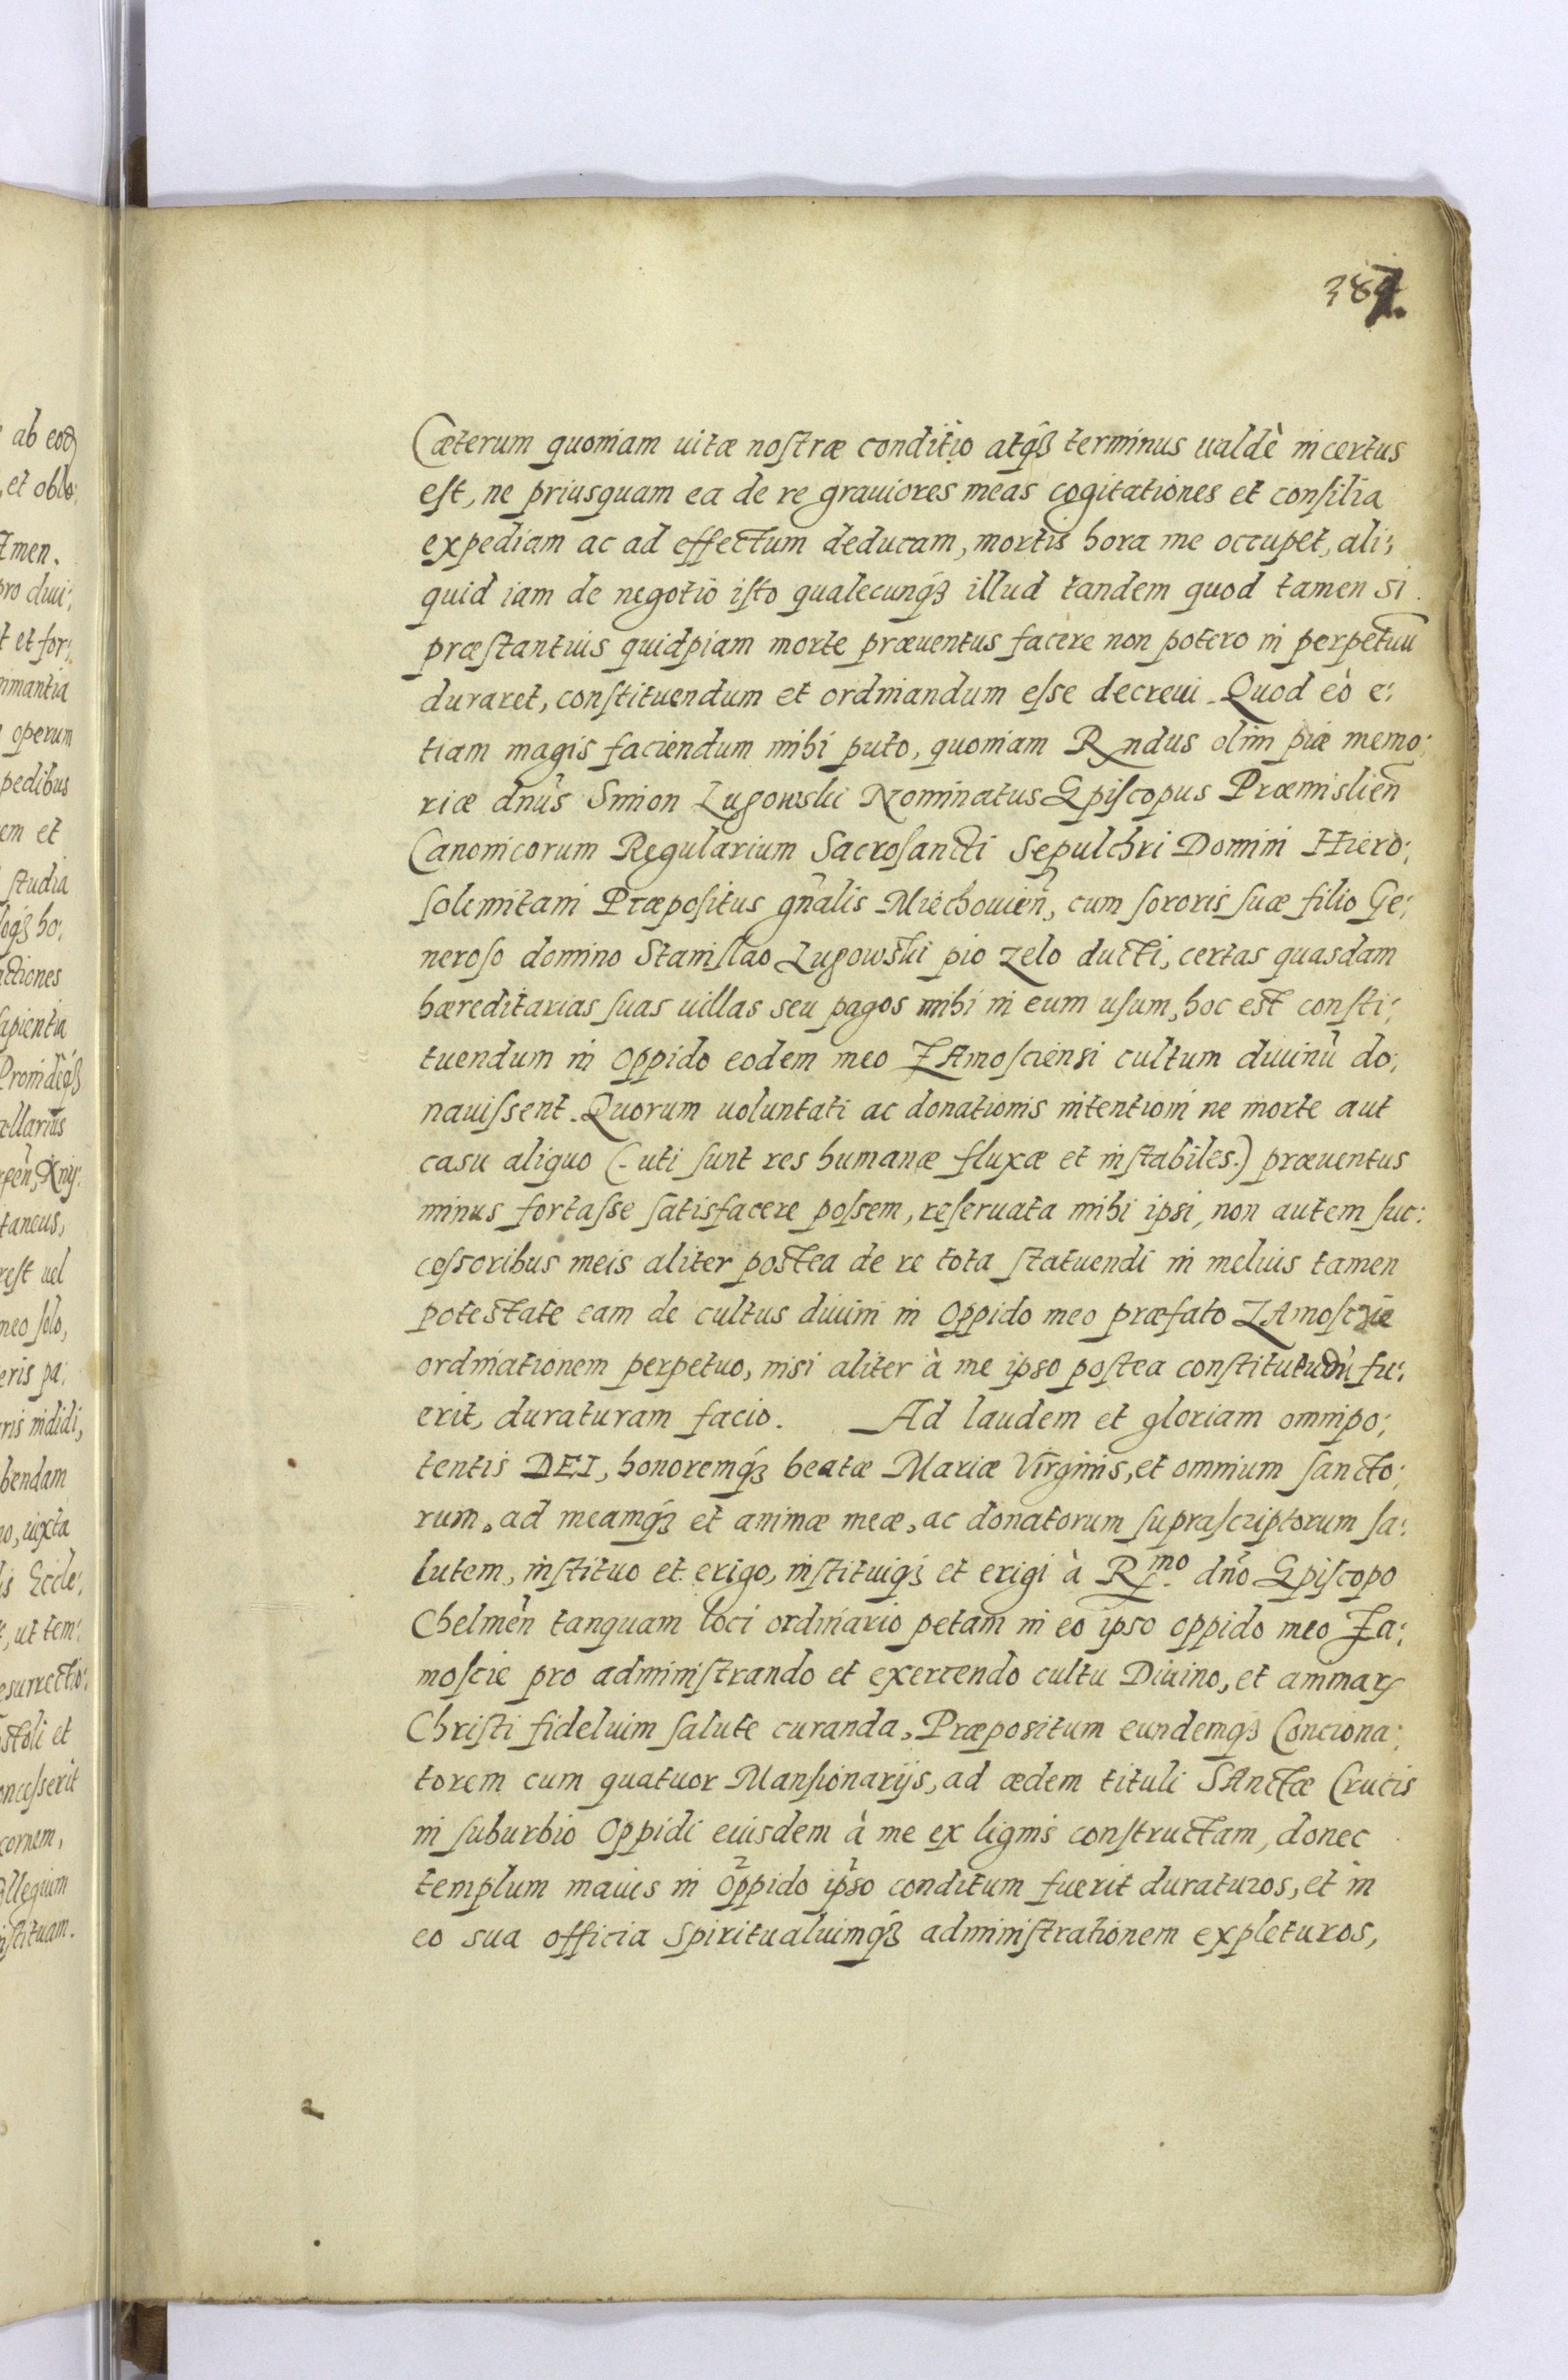 387.
Cæterum quoniam uitæ nostræ conditio atq₃ terminus ualdè incertus
est, ne priusquam ea de re grauiores meas cogitationes et consilia
expediam ac ad effectum deducam, mortis hora me occupet, ali:
quid iam de negotio isto qualecunq₃ illud tandem quod tamen si
præstantius quidpiam morte præuentus facere non potero in perpetuū
duraret, constituendum et ordinandum esse decreui. Quod eò e:
tiam magis faciendum mihi puto, quoniam Rndus olim piæ memo:
riæ dn̄us Simon Lugowski Nominatus Episcopus Præmislien̄
Canonicorum Regularium Sacrosancti Sepulchri Domini Hiero:
solemitani Præpositus gn̄alis Miechouien̄, cum sororis suæ filio Ge:
neroso domino Stanislao Lugowski pio zelo ducti, certas quasdam
hæreditarias suas uillas seu pagos mihi in eum usum, hoc est consti:
tuendum in oppido eodem meo ZAmosciensi cultum diuinū do:
nauissent. Quorum uoluntati ac donationis intentioni ne morte aut
casu aliquo (uti sunt res humanæ fluxæ et instabiles.) præuentus
minus fortasse satisfacere possem, reseruata mihi ipsi, non autem suc:
cessoribus meis aliter postea de re tota statuendi in melius tamen
potestate eam de cultus diuini in oppido meo præfato ZAmoscie
ordinationem perpetuo, nisi aliter à me ipso postea constitutum fu:
erit, duraturam facio. Ad laudem et gloriam omnipo:
tentis DEI, honoremq₃ beatæ Mariæ Virginis, et omnium sancto:
rum, ad meamq₃ et animæ meæ, ac donatorum suprascriptorum sa:
lutem, instituo et erigo, instituiq₃ et erigi à Rmo. dn̄o Episcopo
Chelmen̄ tanquam loci ordinario petam in eo ipso oppido meo Za:
moscie pro administrando et exercendo cultu Diuino, et animarꝝ
Christi fidelium salute curanda, Præpositum eundemq₃ Conciona:
torem cum quatuor Mansionarijs, ad ædem tituli SAnctæ Crucis
in suburbio Oppidi eiusdem à me ex lignis constructam, donec
templum maius in oppido ipso conditum fuerit duraturos, et in
eo sua officia spiritualiumq₃ administrationem expleturos,